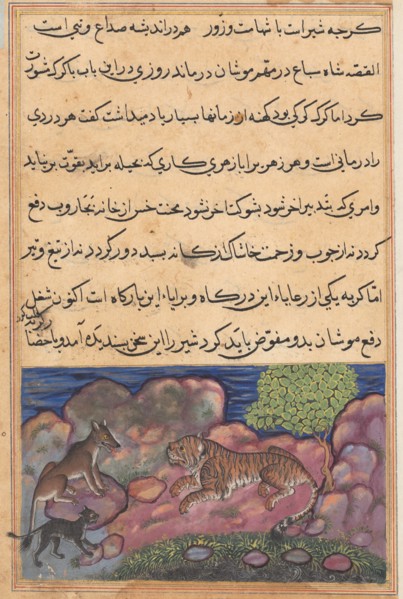 کرچه شیر است با شهامت و زور هم در اندیشه صداع و تبی است
القصه شاه سباع در مهم موشان درماند روزی در این باب با کرک مشورت
کرد اما کرک کرکی بود کهنه از زمانها بسیار یاد میداشت کفت هر دردی
را درمانی است و هر زهر را پازهری کاری که بحیله براید بقوت برنیاید
و امری که بتدبیر اخر شود بشوکت اخر نشود محنت خس از خانه بجاروب دفع
کردند نه از چوب و زحمت خاشاک از بسبد دور کردند نه از تیغ و تیر
اما کربه یکی از رعایاء این درکاه و برایاء این بارکاه است اکنون شغل
دفع موشان بدو مفوض باید کرد شیر را این سخن پسندیده آمد و باحضار